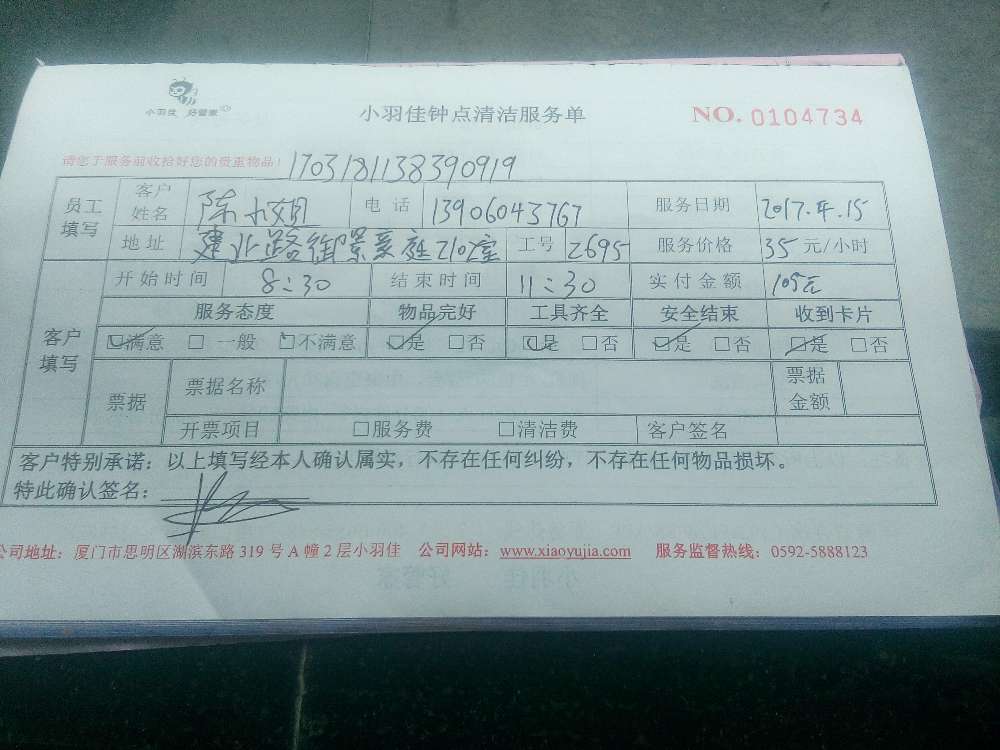 小羽佳 好管家
小羽佳钟点清洁服务单
NO. 0104734
请您于服务前收拾好您的贵重物品! 1703181138390919
员工填写 客户姓名 陈小姐 电话 13906043767 服务日期 2017.4.15
地址 建业路御景豪庭2102室 工号 2695 服务价格 35 元/小时
客户填写 开始时间 8:30 结束时间 11:30 实付金额 105元
服务态度 物品完好 工具齐全 安全结束 收到卡片
☑满意 □一般 □不满意 ☑是 □否 ☑是 □否 ☑是 □否 ☑是 □否
票据 票据名称 票据金额
开票项目 □服务费 □清洁费 客户签名
客户特别承诺:以上填写经本人确认属实,不存在任何纠纷,不存在任何物品损坏。
特此确认签名:
公司地址:厦门市思明区湖滨东路 319 号 A 幢 2 层小羽佳 公司网站:www.xiaoyujia.com 服务监督热线:0592-5888123